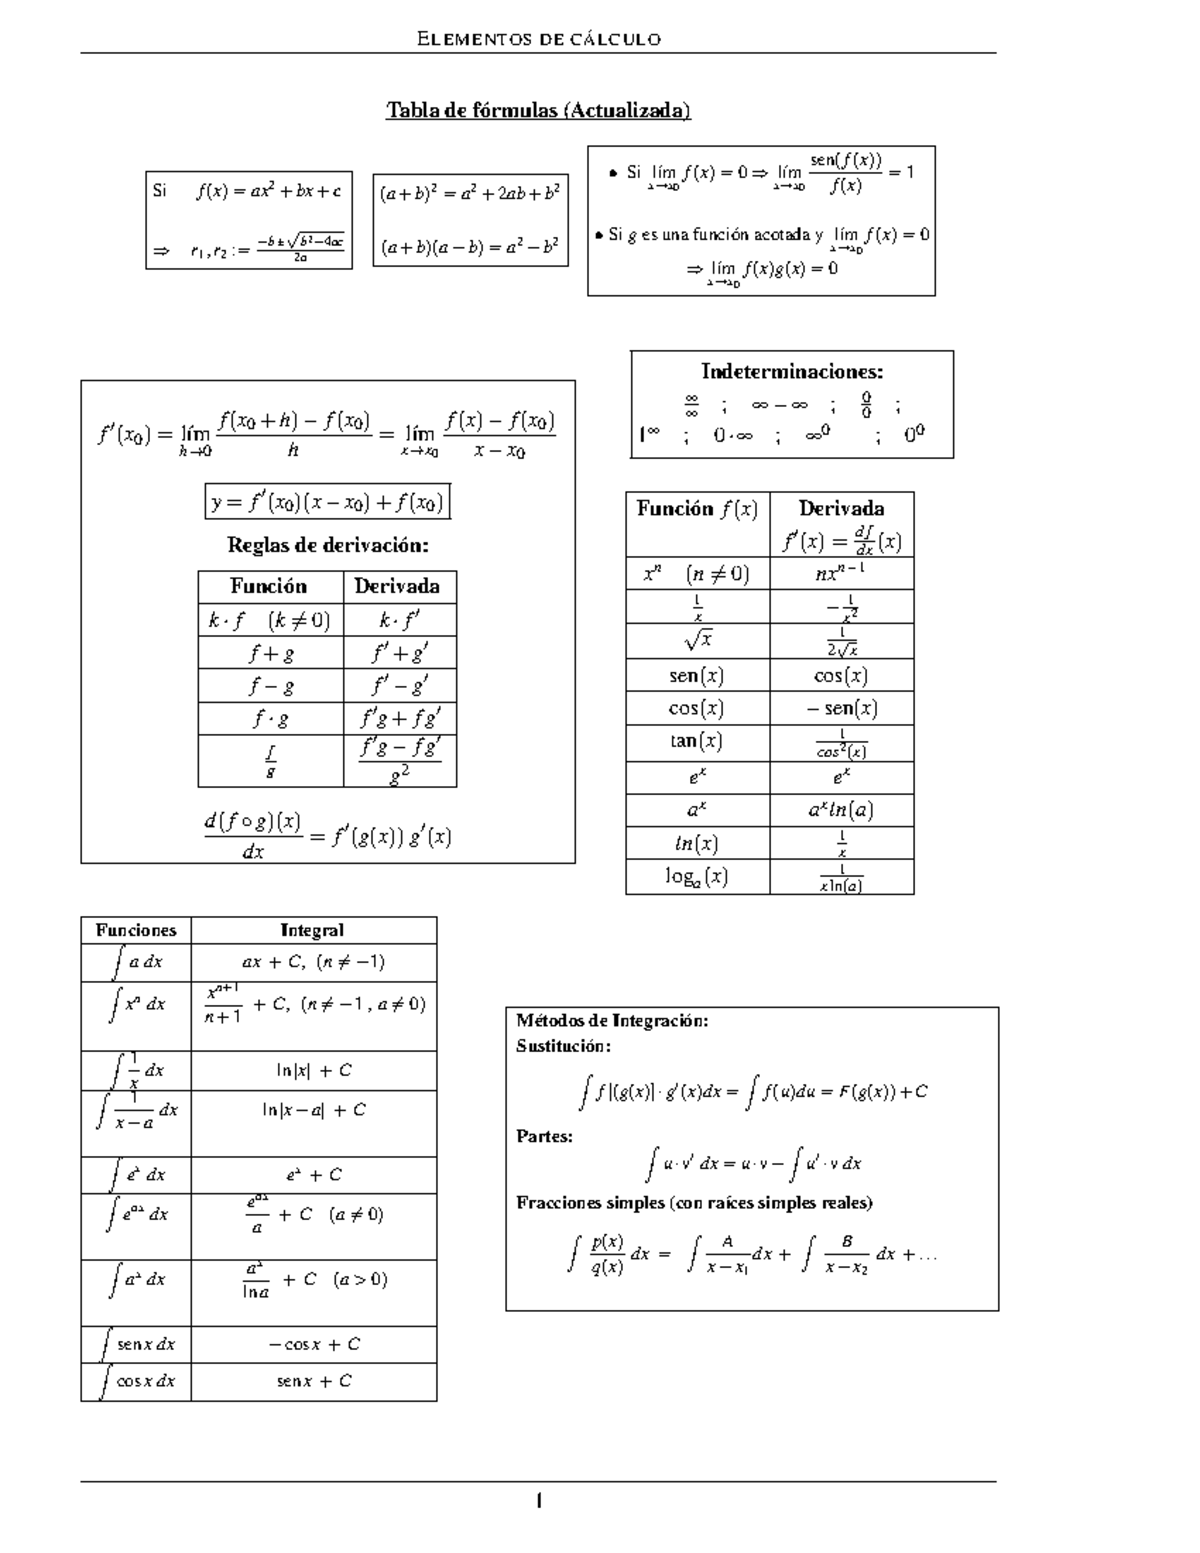 ELEMENTOS DE CÁLCULO
Tabla de fórmulas (Actualizada)
Si f(x) = ax² + bx + c
⇒ r₁, r₂ := (−b ± √(b²−4ac)) / 2a
(a + b)² = a² + 2ab + b²
(a + b)(a − b) = a² − b²
• Si lím_{x→x₀} f(x) = 0 ⇒ lím_{x→x₀} sen(f(x)) / f(x) = 1
• Si g es una función acotada y lím_{x→x₀} f(x) = 0
⇒ lím_{x→x₀} f(x)g(x) = 0
Indeterminaciones:
∞/∞ ; ∞ − ∞ ; 0/0 ;
1^∞ ; 0 · ∞ ; ∞⁰ ; 0⁰
f′(x₀) = lím_{h→0} (f(x₀ + h) − f(x₀)) / h = lím_{x→x₀} (f(x) − f(x₀)) / (x − x₀)
y = f′(x₀)(x − x₀) + f(x₀)
Reglas de derivación:
Función Derivada
k · f (k ≠ 0) k · f′
f + g f′ + g′
f − g f′ − g′
f · g f′g + fg′
f/g (f′g − fg′) / g²
d(f ∘ g)(x) / dx = f′(g(x)) g′(x)
Función f(x) Derivada
f′(x) = df/dx (x)
xⁿ (n ≠ 0) nxⁿ⁻¹
1/x −1/x²
√x 1/(2√x)
sen(x) cos(x)
cos(x) − sen(x)
tan(x) 1/cos²(x)
eˣ eˣ
aˣ aˣln(a)
ln(x) 1/x
logₐ(x) 1/(x ln(a))
Funciones Integral
∫ a dx ax + C, (n ≠ −1)
∫ xⁿ dx xⁿ⁺¹/(n + 1) + C, (n ≠ −1, a ≠ 0)
∫ 1/x dx ln|x| + C
∫ 1/(x − a) dx ln|x − a| + C
∫ eˣ dx eˣ + C
∫ e^{ax} dx e^{ax}/a + C (a ≠ 0)
∫ aˣ dx aˣ/ln a + C (a > 0)
∫ sen x dx − cos x + C
∫ cos x dx sen x + C
Métodos de Integración:
Sustitución:
∫ f[(g(x)] · g′(x)dx = ∫ f(u)du = F(g(x)) + C
Partes:
∫ u · v′ dx = u · v − ∫ u′ · v dx
Fracciones simples (con raíces simples reales)
∫ p(x)/q(x) dx = ∫ A/(x − x₁) dx + ∫ B/(x − x₂) dx + ...
1